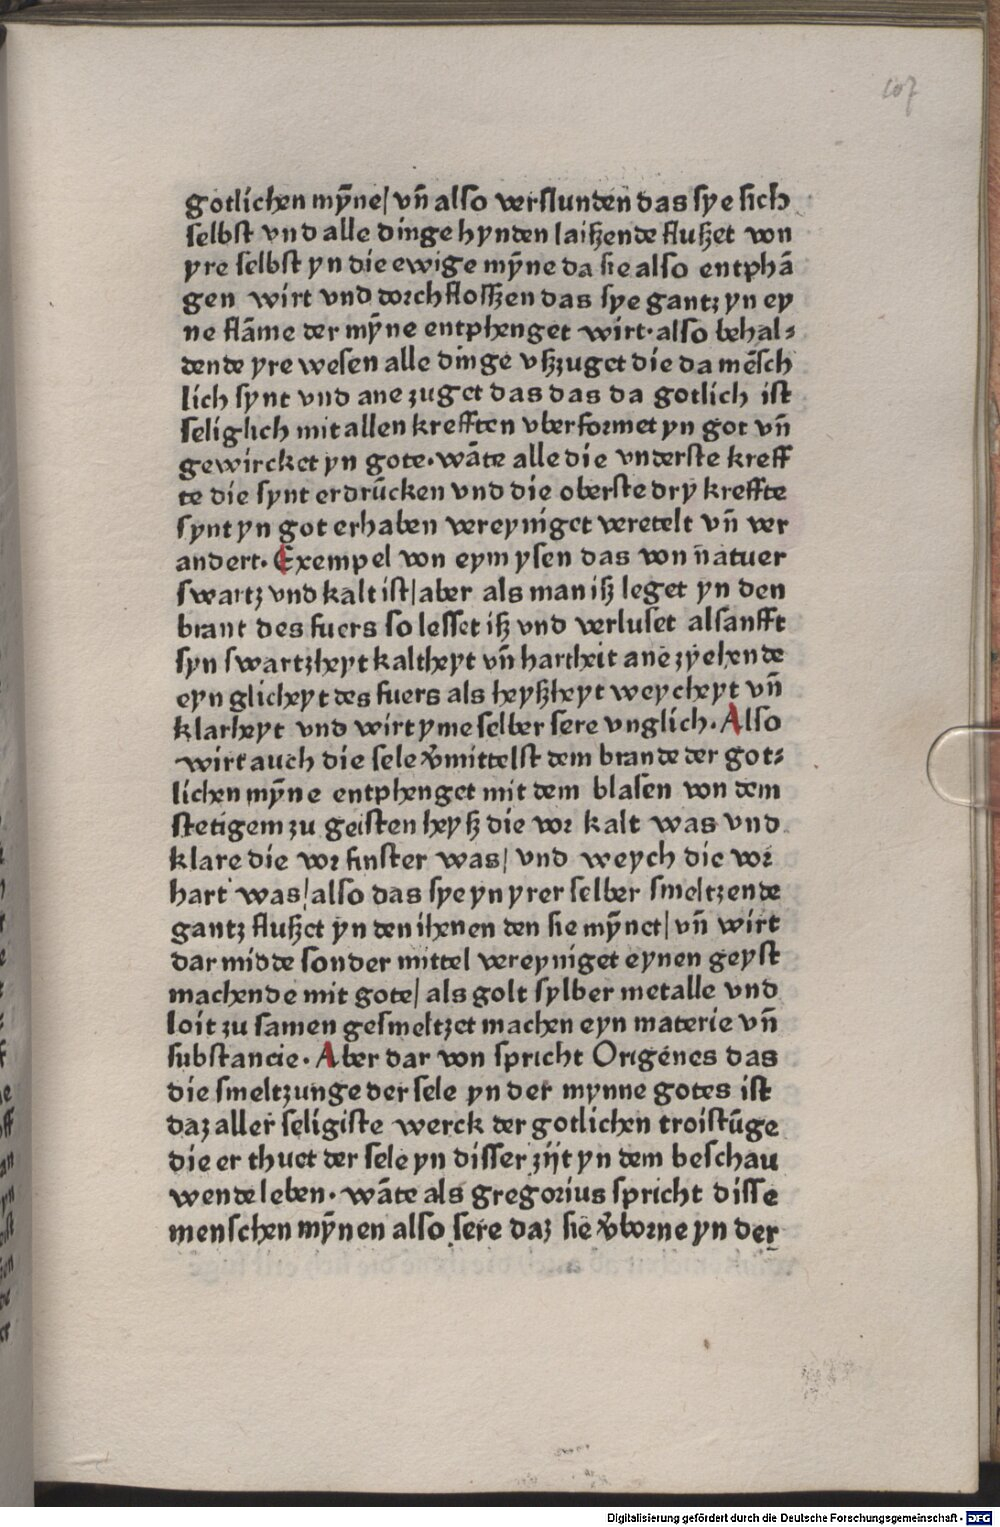 107
gotlichen mȳne/ vn̄ also verslunden das sye sich
selbst vnd alle dinge hynden laiszende fluszet von
yre selbst yn die ewige mȳne da sie also entphā
gen wirt vnd dorchflosszen das sye gantz yn ey
ne flāme der mȳne entphenget wirt· also behal⸗
dende yre wesen alle dinge vszzuget die da mēsch
lich synt vnd ane zuget das das da gotlich ist
seliglich mit allen krefften vberformet yn got vn̄
gewircket yn gote· wāte alle die vnderste kreff
te die synt erdrūcken vnd die oberste dry kreffte
synt yn got erhaben vereyniget veretelt vn̄ ver
andert· Exempel von eym ysen das von n̄atuer
swartz vnd kalt ist/ aber als man isz leget yn den
brant des fuers so lesset isz vnd verluset alsanfft
syn swartzheyt kaltheyt vn̄ hartheit ane zyehende
eyn glicheyt des fuers als heyszheyt weycheyt vn̄
klarheyt vnd wirt yme selber sere vnglich· Also
wirt auch die sele v̄mittelst dem brande der got⸗
lichen mȳne entphenget mit dem blasen von dem
stetigem zu geisten heysz die vor kalt was vnd
klare die vor finster was/ vnd weych die vor
hart was/ also das sye yn yrer selber smeltzende
gantz fluszet yn den ihenen den sie mȳnet/ vn̄ wirt
dar midde sonder mittel vereyniget eynen geyst
machende mit gote/ als golt sylber metalle vnd
loit zu samen gesmeltzet machen eyn materie vn̄
substancie· Aber dar von spricht Origenes das
die smeltzunge der sele yn der mynne gotes ist
daz aller seligiste werck der gotlichen troistūge
die er thuet der sele yn disser zijt yn dem beschau
wende leben· wāte als gregorius spricht disse
menschen mȳnen also sere daz sie v̄borne yn der
Digitalisierung gefördert durch die Deutsche Forschungsgemeinschaft - DFG